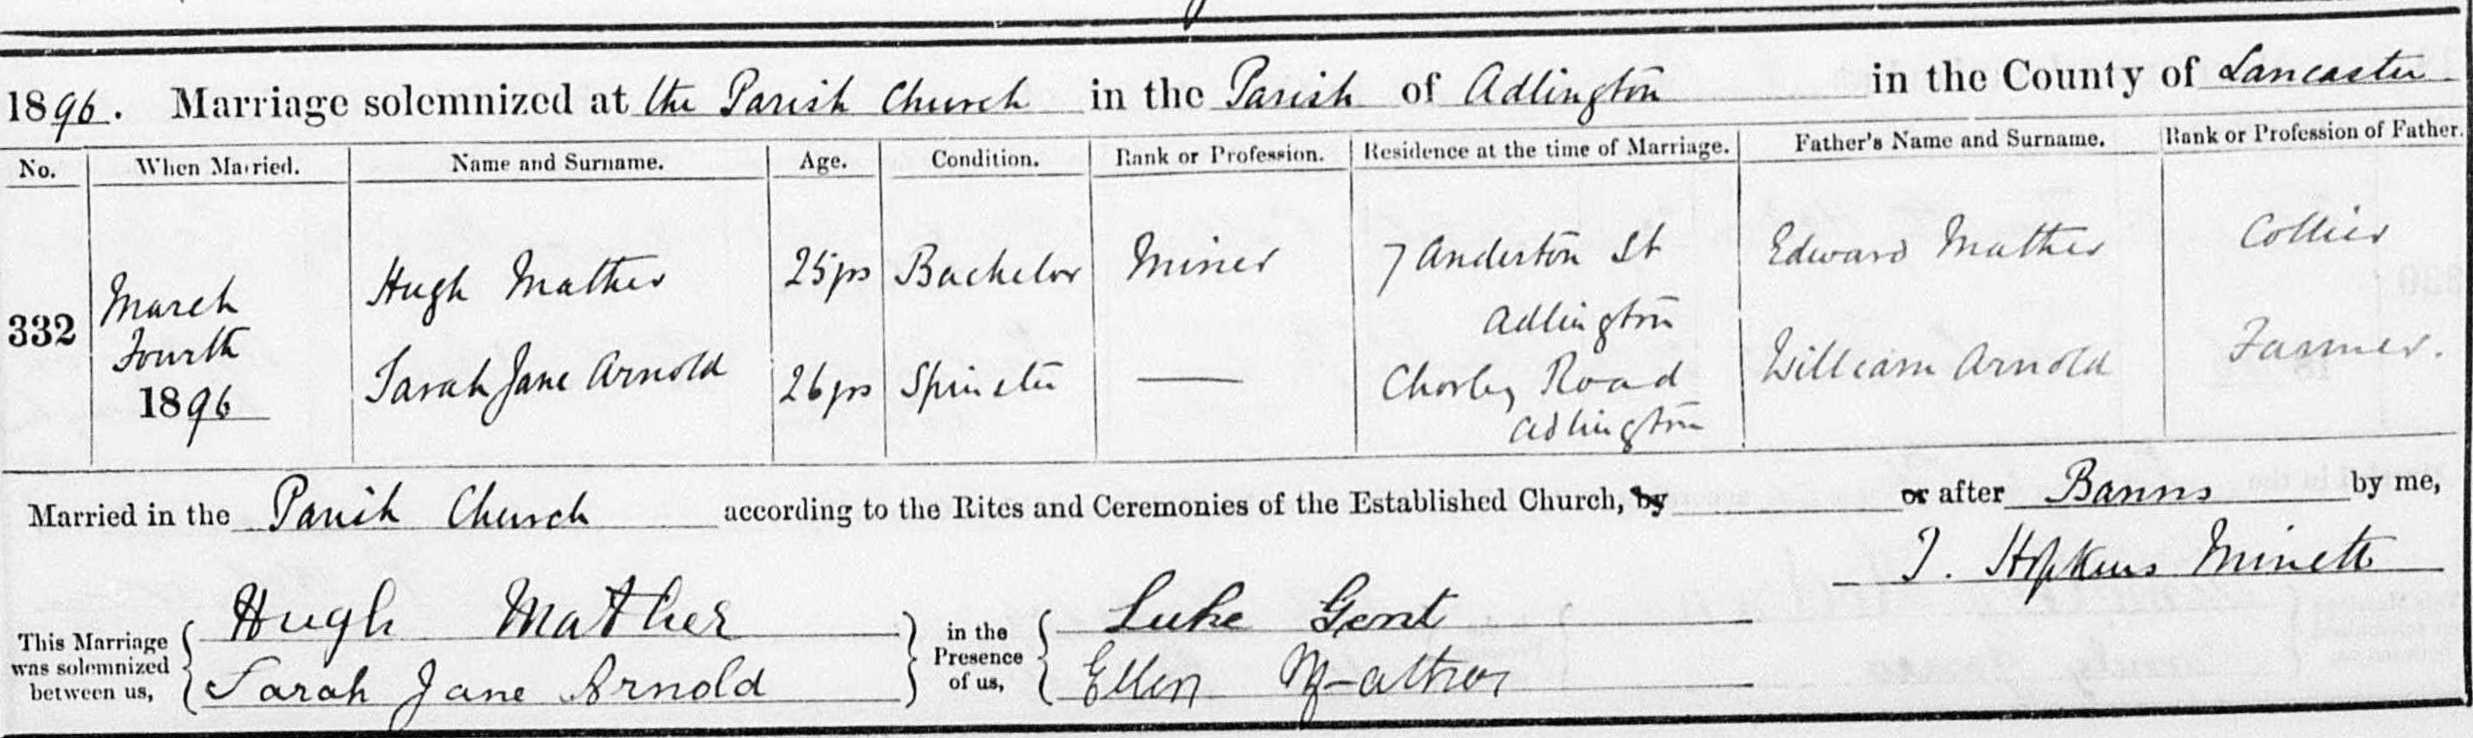 1896. Marriage solemnized at the Parish Church in the Parish of Adlington in the County of Lancaster
No. When Married. Name and Surname. Age. Condition. Rank or Profession. Residence at the time of Marriage. Father's Name and Surname. Rank or Profession of Father.
332 March Fourth 1896 Hugh Mather 25 yrs Bachelor Miner 7 Anderton St Adlington Edward Mather Collier
Sarah Jane Arnold 26 yrs Spinster — Chorley Road Adlington William Arnold Farmer.
Married in the Parish Church according to the Rites and Ceremonies of the Established Church, by or after Banns by me,
T. Hopkins Minett
This Marriage was solemnized between us, Hugh Mather in the Presence of us, Luke Gent
Sarah Jane Arnold Ellen Mather